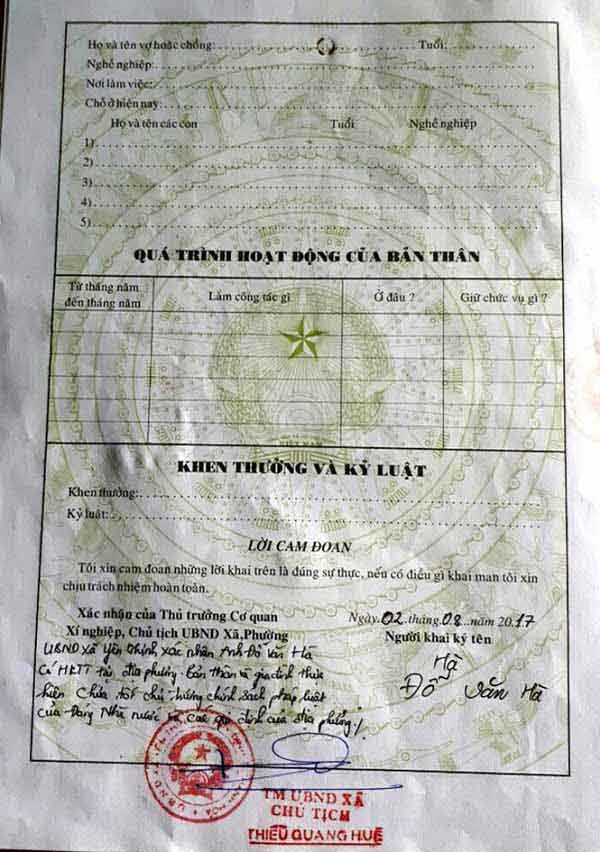 Họ và tên vợ hoặc chồng: Tuổi:
Nghề nghiệp:
Nơi làm việc:
Chỗ ở hiện nay:
Họ và tên các con Tuổi Nghề nghiệp
1)
2)
3)
4)
5)
QUÁ TRÌNH HOẠT ĐỘNG CỦA BẢN THÂN
Từ tháng năm đến tháng năm Làm công tác gì Ở đâu ? Giữ chức vụ gì ?
VIỆT NAM
KHEN THƯỞNG VÀ KỶ LUẬT
Khen thưởng:
Kỷ luật:
LỜI CAM ĐOAN
Tôi xin cam đoan những lời khai trên là đúng sự thực, nếu có điều gì khai man tôi xin
chịu trách nhiệm hoàn toàn.
Xác nhận của Thủ trưởng Cơ quan
Xí nghiệp, Chủ tịch UBND Xã,Phường
Ngày 02 tháng 08 năm 2017
Người khai ký tên
UBND xã Yên Thịnh xác nhận Anh Đỗ Văn Hà
Có HKTT tại địa phương. Bản thân và gia đình thực
hiện chưa tốt chủ trương chính sách pháp luật
của Đảng Nhà nước và các quy định của địa phương
Hà
Đỗ Văn Hà
TM UBND XÃ
CHỦ TỊCH
THIỀU QUANG HUỆ